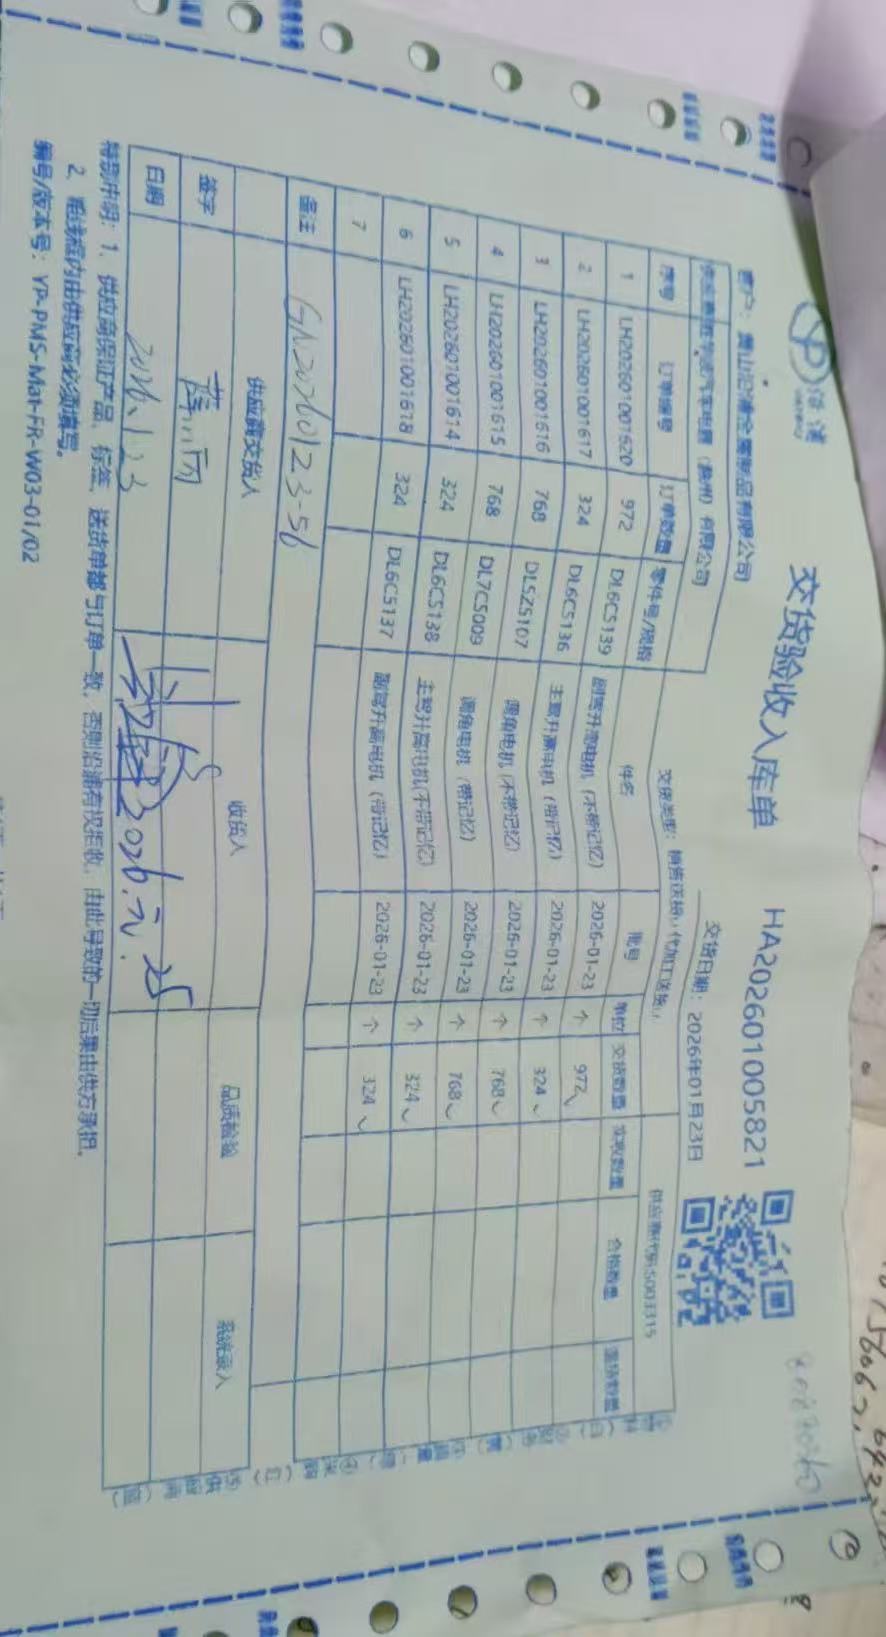 交货验收入库单
HA202601005821
客户：黄山沿浦金属制品有限公司
交货日期：2026年01月23日
汽车电器（滁州）有限公司
交货类型：销售送货 代加工送货
供应商代码:S003315
序号 订单编号 订单数量 零件号/规格 件名 批号 单位 交货数量 实收数量 合格数量 退货数量
1 LH202601001620 972 DL6C5139 副驾升高电机（不带记忆） 2026-01-23 个 972
2 LH202601001617 324 DL6C5136 主驾升高电机（带记忆） 2026-01-23 个 324
3 LH202601001616 768 DL5Z5107 调角电机（不带记忆） 2026-01-23 个 768
4 LH202601001615 768 DL7C5009 调角电机（带记忆） 2026-01-23 个 768
5 LH202601001614 324 DL6C5138 主驾升高电机（不带记忆） 2026-01-23 个 324
6 LH202601001618 324 DL6C5137 副驾升高电机（带记忆） 2026-01-23 个 324
7
备注 GN20260123-56
供应商交货人 收货人 品质检验 系统录入
签字
日期 2026.1.23 2026.元.25
特别申明：1、供应商保证产品、标签、送货单都与订单一致，否则沿浦有权拒收，由此导致的一切后果由供方承担。
2、粗线框内由供应商必须填写。
编号/版本号：YP-PMS-Mar-FR-W03-01/02